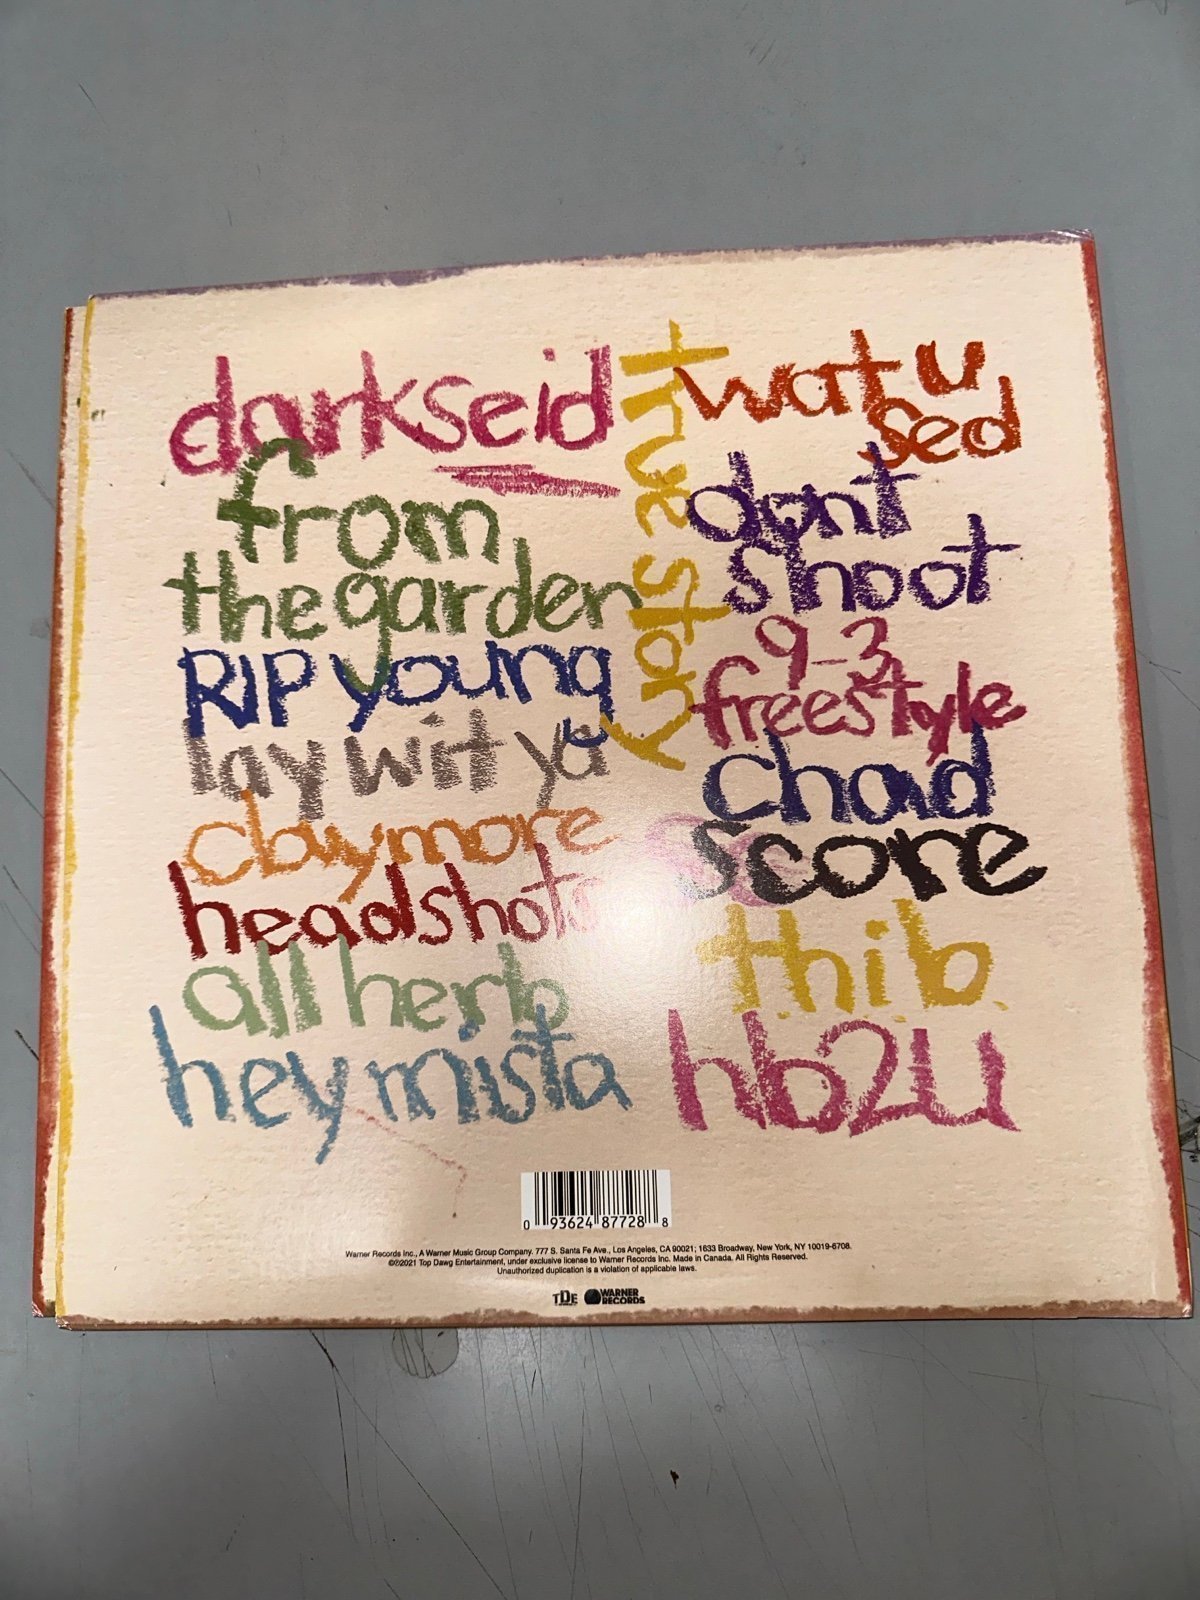 darkseid
from
the garden
RIP young
lay wit ya
claymore
headshots
all herb
hey mista
true story
wat u
sed
dont
shoot
9-3
freestyle
chad
score
thib
hb2u
0 93624 87728 8
Warner Records Inc., A Warner Music Group Company. 777 S. Santa Fe Ave., Los Angeles, CA 90021; 1633 Broadway, New York, NY 10019-6708.
©℗2021 Top Dawg Entertainment, under exclusive license to Warner Records Inc. Made in Canada. All Rights Reserved.
Unauthorized duplication is a violation of applicable laws.
TDE
WARNER
RECORDS